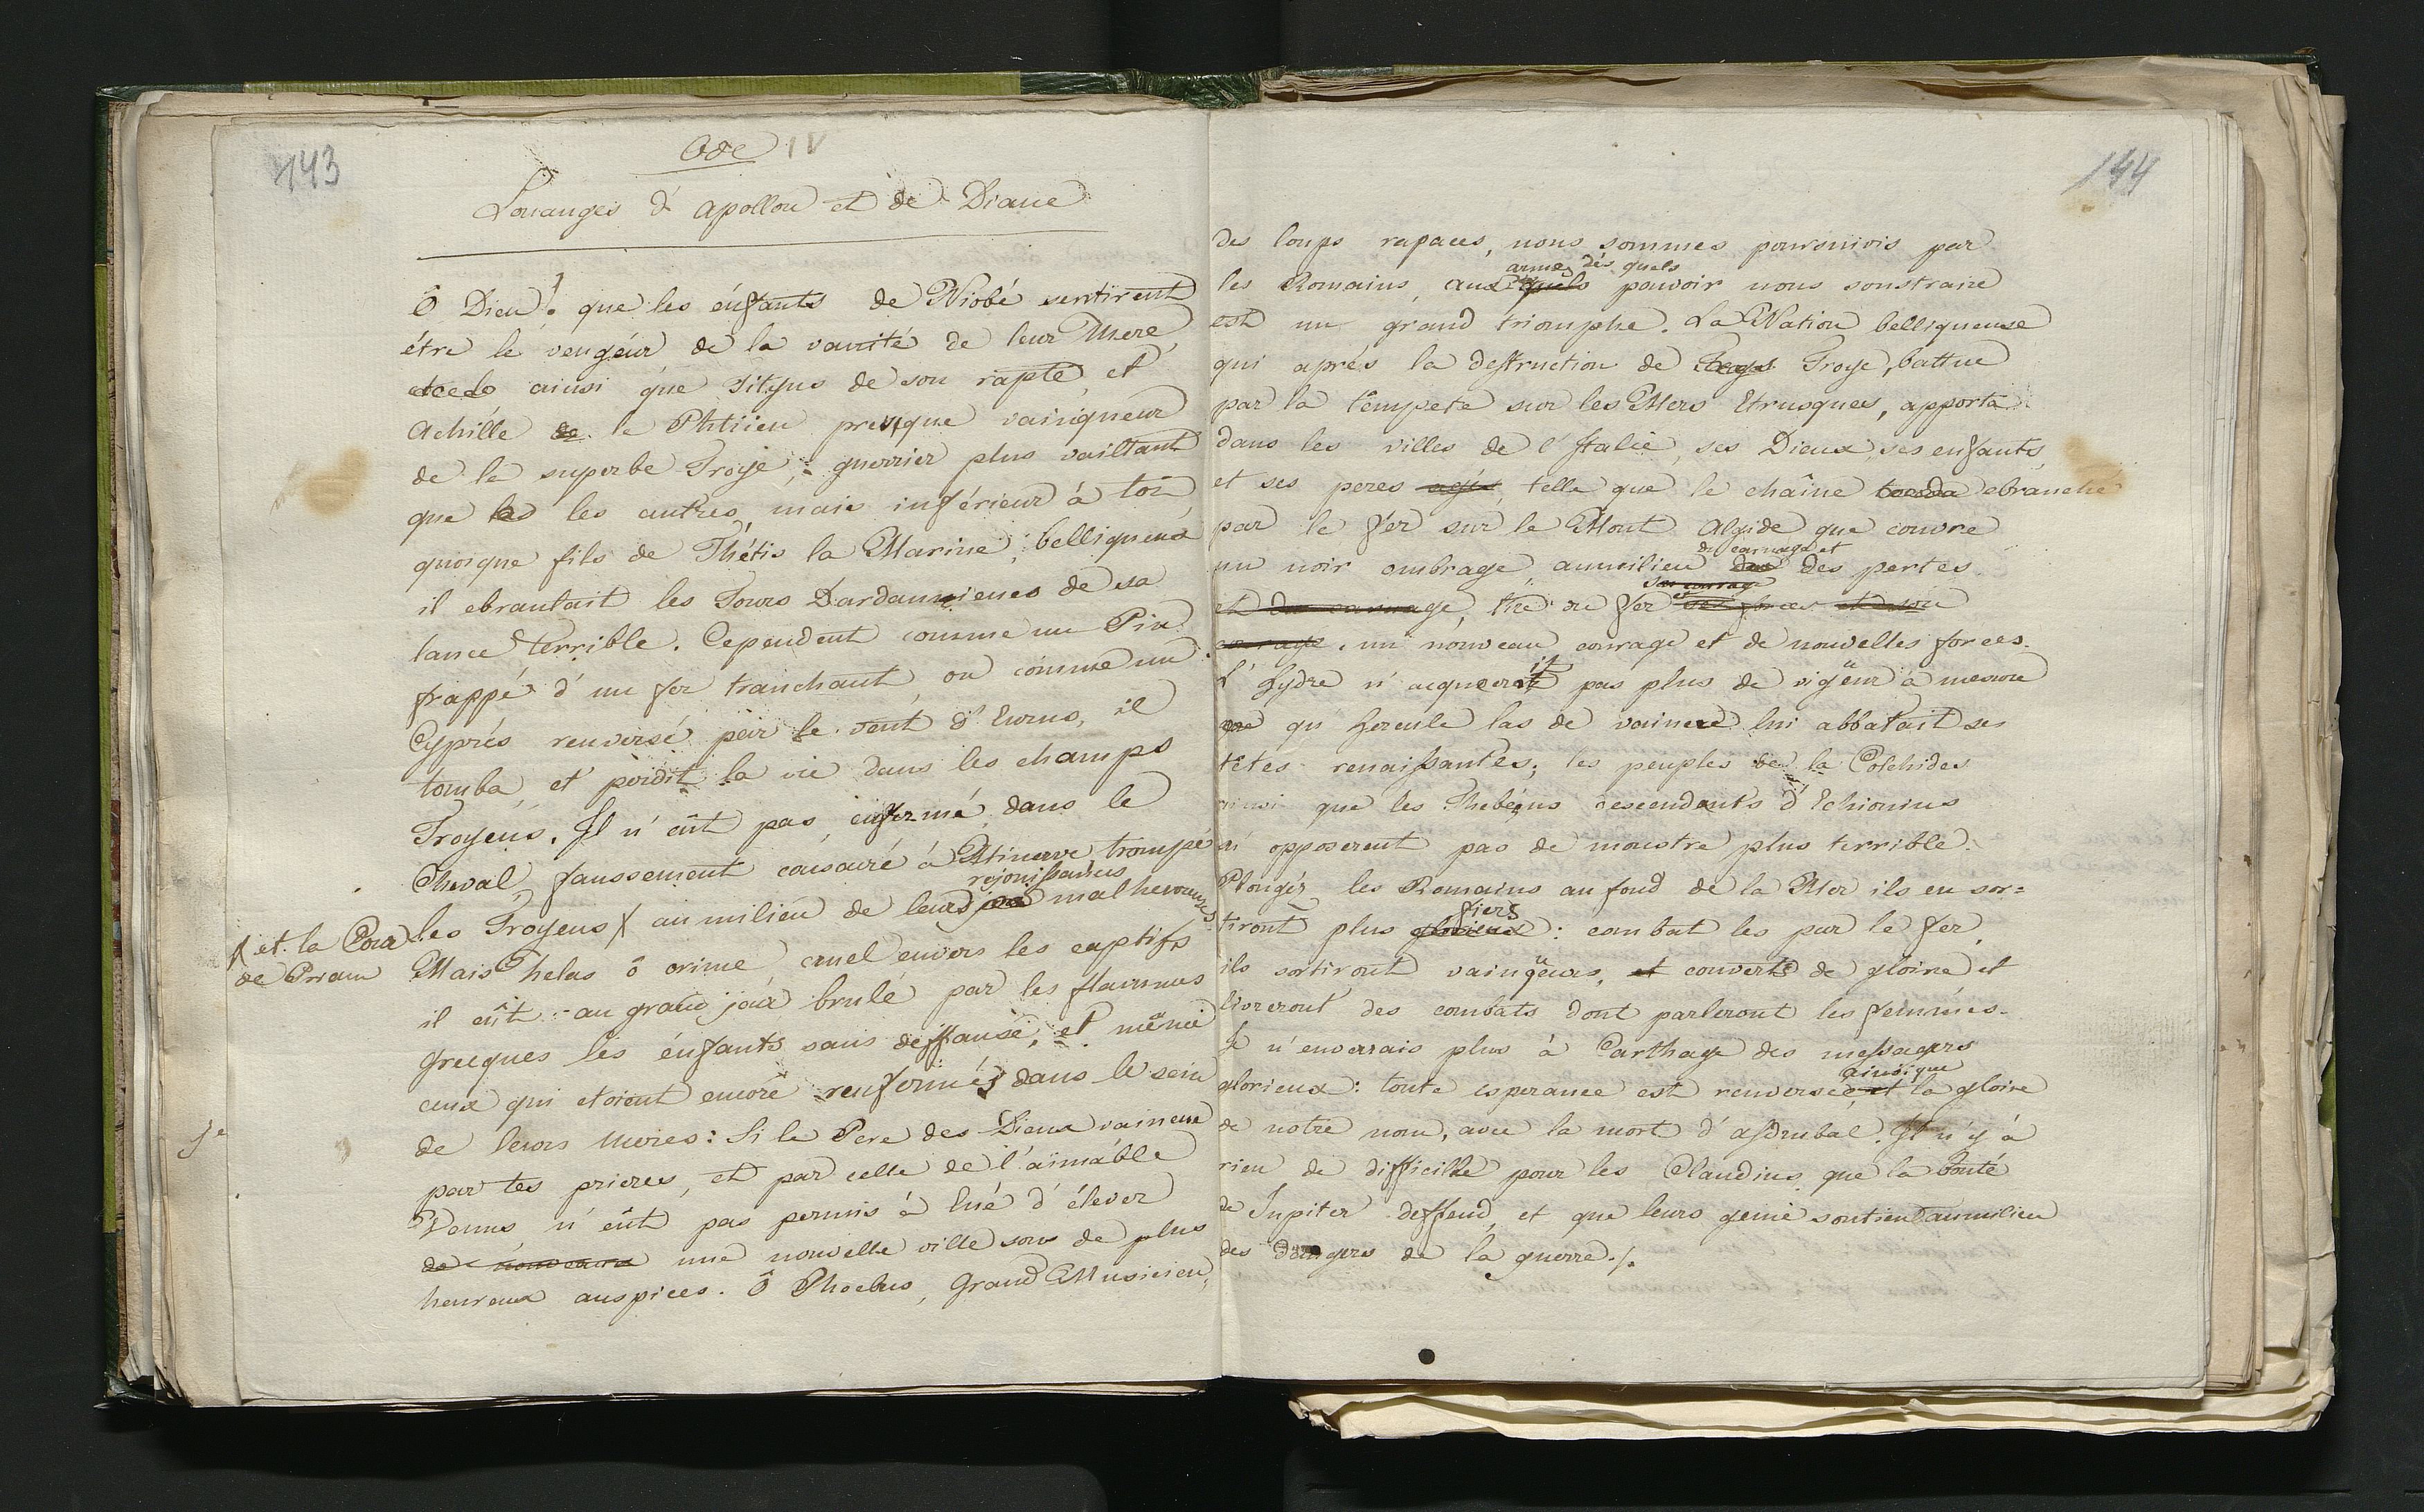 143
Ode IV
Louanges d'apollon et de Diane
ô Dieu! que les énfants de Niobé sentirent
étre le vengéur de la vanité de leur Mere,
ainsi que Titÿus de son rapte, et
Achille de le Phtiien presque vainqueur
de la superbe Troÿe; guerrier plus vailtant
que les les autres mais inférieur à toi
quoique fils de Thétis la Marine; belliqueux
il ebranlait les Tours Dardanienes de sa
lance terrible. Cependent comme un Pin
frappé d'un fer tranchant, ou comme un
Cyprés renversé par le vent d'Eurus, il
tomba, et perdit la vie dans les champs
Troyens. Il n'eût pas, enfermé, dans le
Cheval faussement consacré à Minerve, trompé
les Troyens X au milieu de leurs rejouissances malheureuses
X et la Cour
de Priam
Mais helas ô crime, cruel envers les captifs
il eût au grand jour brulé par les flammes
Grecques les énfants sans deffanse, et même
ceux qui etoient encore renfermés dans le sein
de leurs meres: Si le Pere des Dieux vaincu
par tes prieres, et par celle de l'aimable
Venus, n'eût pas permis à Ené d'élever
de nouveaux une nouvelle ville sous de plus
heureux auspices. ô Phoebus, Grand Musicien,
144
des loups rapaces, nous sommes poursuivis par
les Romains, aux quels armes dés quels pouvoir nous soustraire
est un grand triomphe. La Nation belliqueuse
qui aprés la destruction de Troye, battue
par la tempete sur les Mers Etrusques, apporta
dans les villes de l'Italie, ses Dieux, ses enfants
et ses peres agés, telle que le chaîne ebranché
par le fer sur le Mont Algide que couvre
un noir ombrage, aumilieu du carnage et des pertes
et du carnage, tire du fer ses forces et son
courage, un nouveau courage et de nouvelles forces.
L'hydre n'acquerit pas plus de vigëur à mesure
qu'hercule las de vaincre lui abbatait ses
têtes renaissantes; les peuples de la Colchides
ainsi que les Thebéens descendants d'Echionius
n'opposerent pas de monstre plus terrible.
Plongés les Romains au fond de la Mer ils en sor=
tiront plus glorieux fiers: combat les par le fer,
ils sortiront vainqüeurs, et couverts de gloire et
livreront des combats dont parleront les femmes.
Je n'enverrais plus à Carthage des messagers
glorieux: toute esperance est renversée, et ainsi que la gloire
de notre nom, avec la mort d'asdrubal. Il n'y à
rien de difficille pour les Claudius que la bonté
de Jupiter deffend, et que leurs genie soutient aumilieu
des dangers de la guerre./.